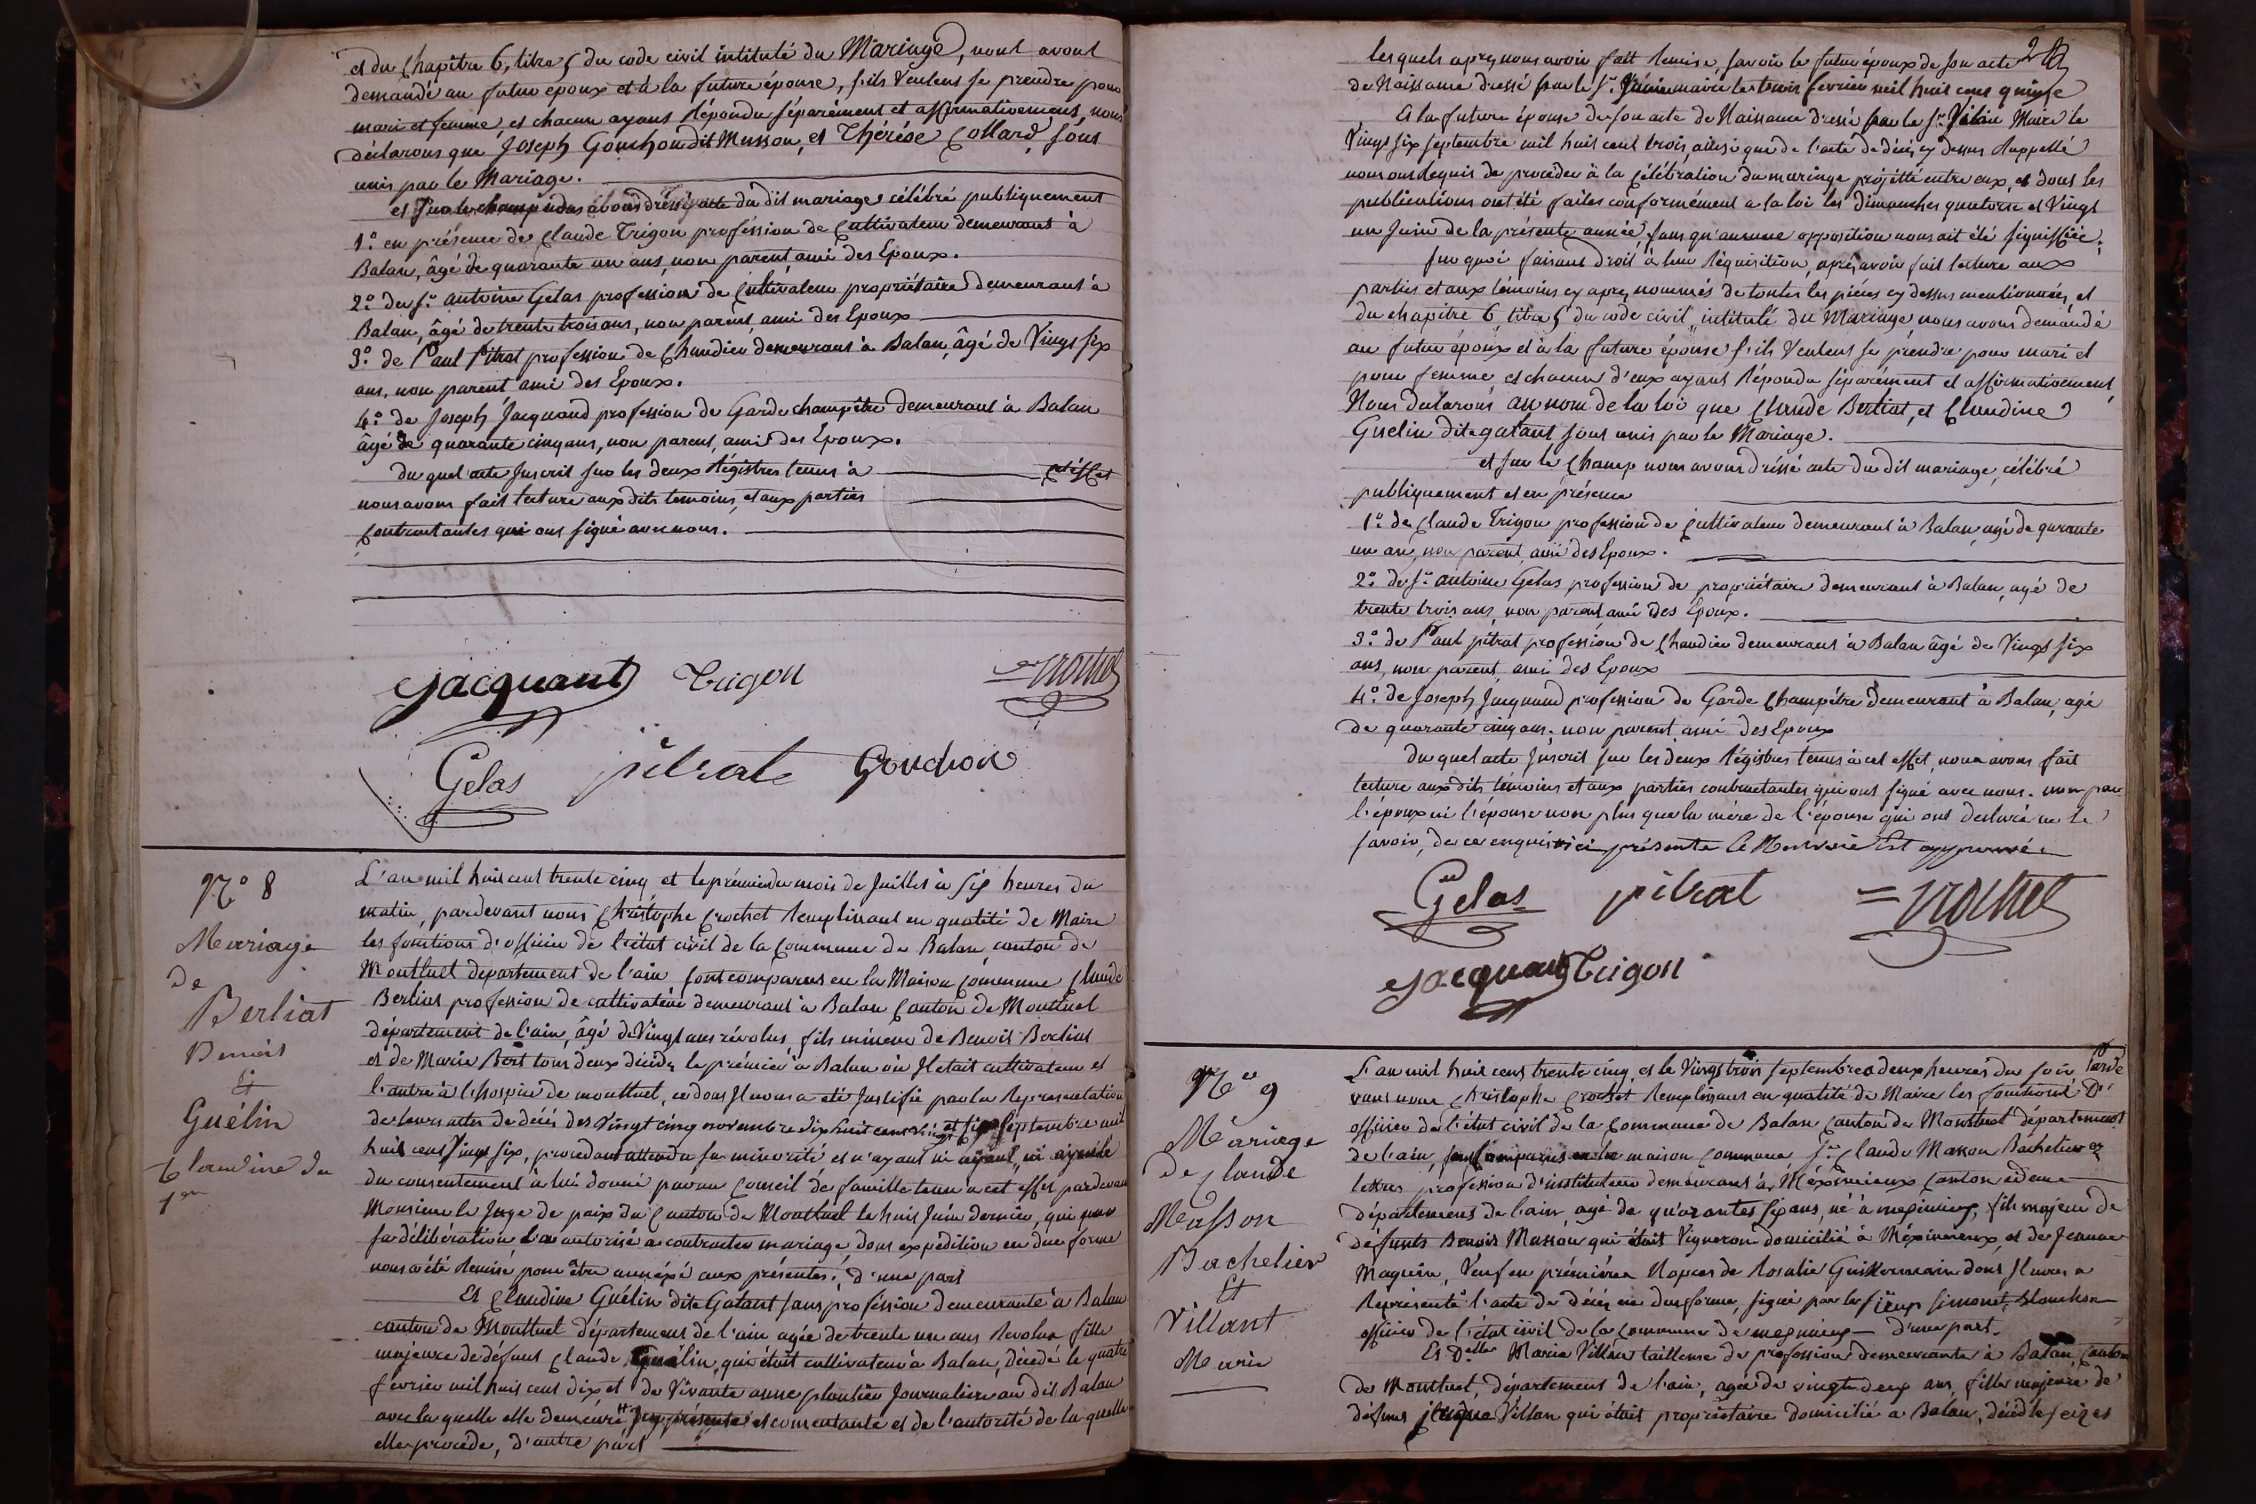 et du Chapitre 6, titre 5 du code civil intitulé du Mariage, nous avons
demandé au futur epoux et à la future épouse, s'ils veulent se prendre pour
mari et femme, et chacun ayant répondu séparément et affirmativement, nous
déclarons que Joseph Gouchon dit Musson, et Thérése Collard, sont
unis par le Mariage.
et sur le champ nous avons dressé acte du dit mariage célébré publiquement
1.° en présence de Claude Trigon profession de Cultivateur demeurant à
Balan, âgé de quarante un ans, non parent, ami des Epoux.
2.° du S.r antoine Gelas profession de Cultivateur propriétaire demeurant à
Balan, âgé de trente trois ans, non parent, ami des Epoux
3.° de Paul Pitrat profession de Chaudier demeurant à Balan, âgé de Vingt six
ans, non parent ami des Epoux.
4.° de Joseph Jacquand profession de Garde champêtre demeurant à Balan
âgé de quarante cinq ans, non parent, ami des Epoux.
du quel acte Inscrit sur les deux Régistres tenus à cet effet
nous avons fait lecture aux dits temoins, et aux parties
Contractantes qui ont signé avec nous.
Jacquant Trigon Crochet
Gelas pitrat Gouchon
N° 8
Mariage
de
Berliat
Benoit
Et
Guélin
Claudine du
1er
L'an mil huit cent trente cinq et le prémier du mois de Juillet à six heures du
matin, pardevant nous Christophe Crochet Remplissant en qualité de Maire
les fonctions d'officier de l'état civil de la Commune de Balan, canton de
Montluel département de l'ain sont comparus en la Maison commune Claude
Berliat profession de cultivateur demeurant à Balan Canton de Montluel
département de l'ain, âgé de Vingt ans révolus, fils mineur de Benoit Berliat
et de Marie Bert tous deux décédés le prémier à Balan où Il etait cultivateur et
l'autre à l'hospice de montluel, ce dont Il nous a été Justifié par la Représentation
de leurs actes de décès des Vingt cinq novembre dix huit cent et six Septembre mil
huit cent Vingt six, procédant attendu sa minorité et n'ayant ni ayeul, ni ayeule
du consentement à lui donné par un Conseil de famille tenu à cet effet pardevant
Monsieur le Juge de paix du Canton de Montluel le huit Juin dernier, qui par
sa délibération l'a autorisé à contracter mariage, dont expédition en due forme
nous a été Remise pour être annéxé aux présentes, d'une part
Et Claudine Guélin dite Galant sans profession demeurante à Balan
canton de Montluel département de l'ain agée de trente un ans Revolus fille
majeure de défunt Claude Guélin, qui était cultivateur à Balan, décédé le quatre
fevrier mil huit cent dix et de Vivante anne ploutier Journaliere au dit Balan
avec la quelle elle demeure Icy présente et consentante et de l'autorité de la quelle
elle procède, d'autre part
les quels après nous avoir fait Remise, savoir le futur époux de son acte
de Naissance dressé par le S.r maire le trois fevrier mil huit cent quinze
Et la future épouse de son acte de Naissance dressé par le S.r Maire le
Vingt six septembre mil huit cent trois, ainsi que de l'acte de décès cy dessus Rappellé
nous ont Requis de procéder à la Célébration du mariage projetté entre eux, et dont les
publications ont été faites conformément a la loi les dimanches quatorze et Vingt
un Juin de la présente année, sans qu'aucune opposition nous ait été signiffiée.
sur quoi faisant droit à leur Réquisition, après avoir fait lecture aux
parties et aux témoins cy après nommés de toutes les piéces cy dessus mentionnées, et
du chapitre 6, titre 5 du code civil, intitulé du Mariage nous avons demandé
au futur époux et à la future épouse s'ils Veulent se prendre pour mari et
pour femme et chacun d'eux ayant Répondu séparément et affirmativement
Nous déclarons au nom de la loi que Claude Berliat, et Claudine
Guelin dite galant, sont unis par le Mariage.
et sur le Champ nous avons dréssé acte du dit mariage, célébré
publiquement et en présence
1.° de Claude Trigon profession de Cultivateur demeurant à Balan, agé de quarante
un an, non parent, ami des Epoux.
2.° du S.r antoine Gelas profession de propriétaire demeurant à Balan, agé de
trente trois ans, non parent ami des Epoux.
3.° de Paul pitrat profession de Chaudier demeurant à Balan âgé de Vingt six
ans, non parent, ami des Epoux
4.° de Joseph Jacquand profession de Garde Champêtre demeurant à Balan, agé
de quarante cinq ans, non parent, ami des Epoux
du quel acte Inscrit sur les deux Régistres tenus à cet effet, nous avons fait
lecture aux dits témoins et aux parties contractantes qui ont signé avec nous. non pas
l'époux ni l'épouse non plus que la mère de l'épouse qui ont déclaré ne le
savoir, de ce enquis ici présente
Gelas pitrat Crochet
Jacquant Trigon
N° 9
Mariage
de Claude
Masson
Bachelier
Et
Villant
Marie
L'an mil huit cent trente cinq, et le Vingt trois septembre a deux heures du soir
vant nous Christophe Crochet Remplissant en qualité de Maire les fonctions d'
officier de l'état civil de la Commune de Balan Canton de Montluel département
de l'ain, sont Comparus en la maison commune S.r Claude Masson Bachelier es
lettres profession d'instituteur demeurant à Méximieux Canton idem
département de l'ain, agé de quarante six ans, né à meximieux, fils majeur de
défunts Benoit Masson qui était Vigneron domicilié à Méximieux, et de Jeanne
Magnin, Veuf en prémières Nopces de Rosalie Guillermain dont Il nous a
Représenté l'acte de décès en due forme, signé par le sieur Simonet Blanchon
officier de l'état civil de la Commune de meximieux d'une part.
Et D.elle Marie Villan tailleuse de profession demeurante à Balan, Canton
de Montluel, département de l'ain, agée de vingt deux ans, fille majeure de
défunt Villan qui était propriétaire domicilié a Balan, décédé le seize